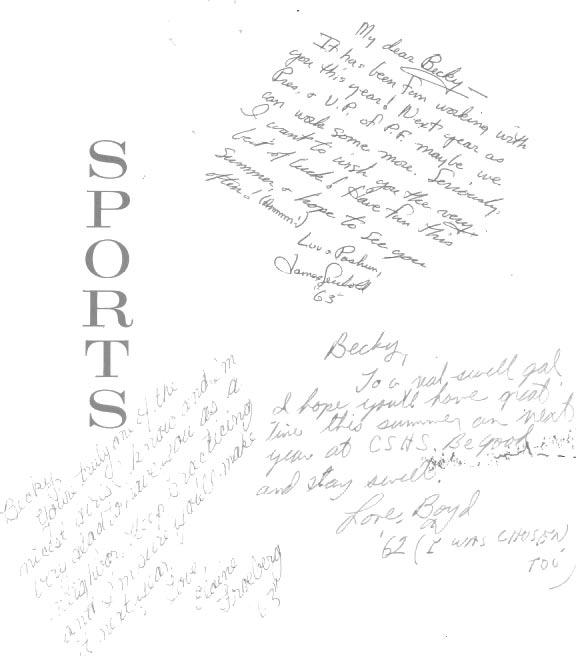 SPORTS
My dear Becky—
It has been fun working with
you this year! Next year as
Pres. & V.P. of P.F. maybe we
can work some more. Seriously,
I want to wish you the very
best of luck! Have fun this
summer, & hope to see you
often! (Hmmm!)
Luv & Pashun,
James
'63
Becky,
To a real swell gal
I hope you'll have great
time this summer an next
year at CSHS. Be good
and stay swell.
Love, Boyd
'62 (I WAS CHOSEN
TOO)
Becky,
You're truly one of the
nicest girls I know and I'm
very glad to have you as a
neighbor. Keep practicing
and I'm sure you'll make
it next year.
Love,
Elaine
'63